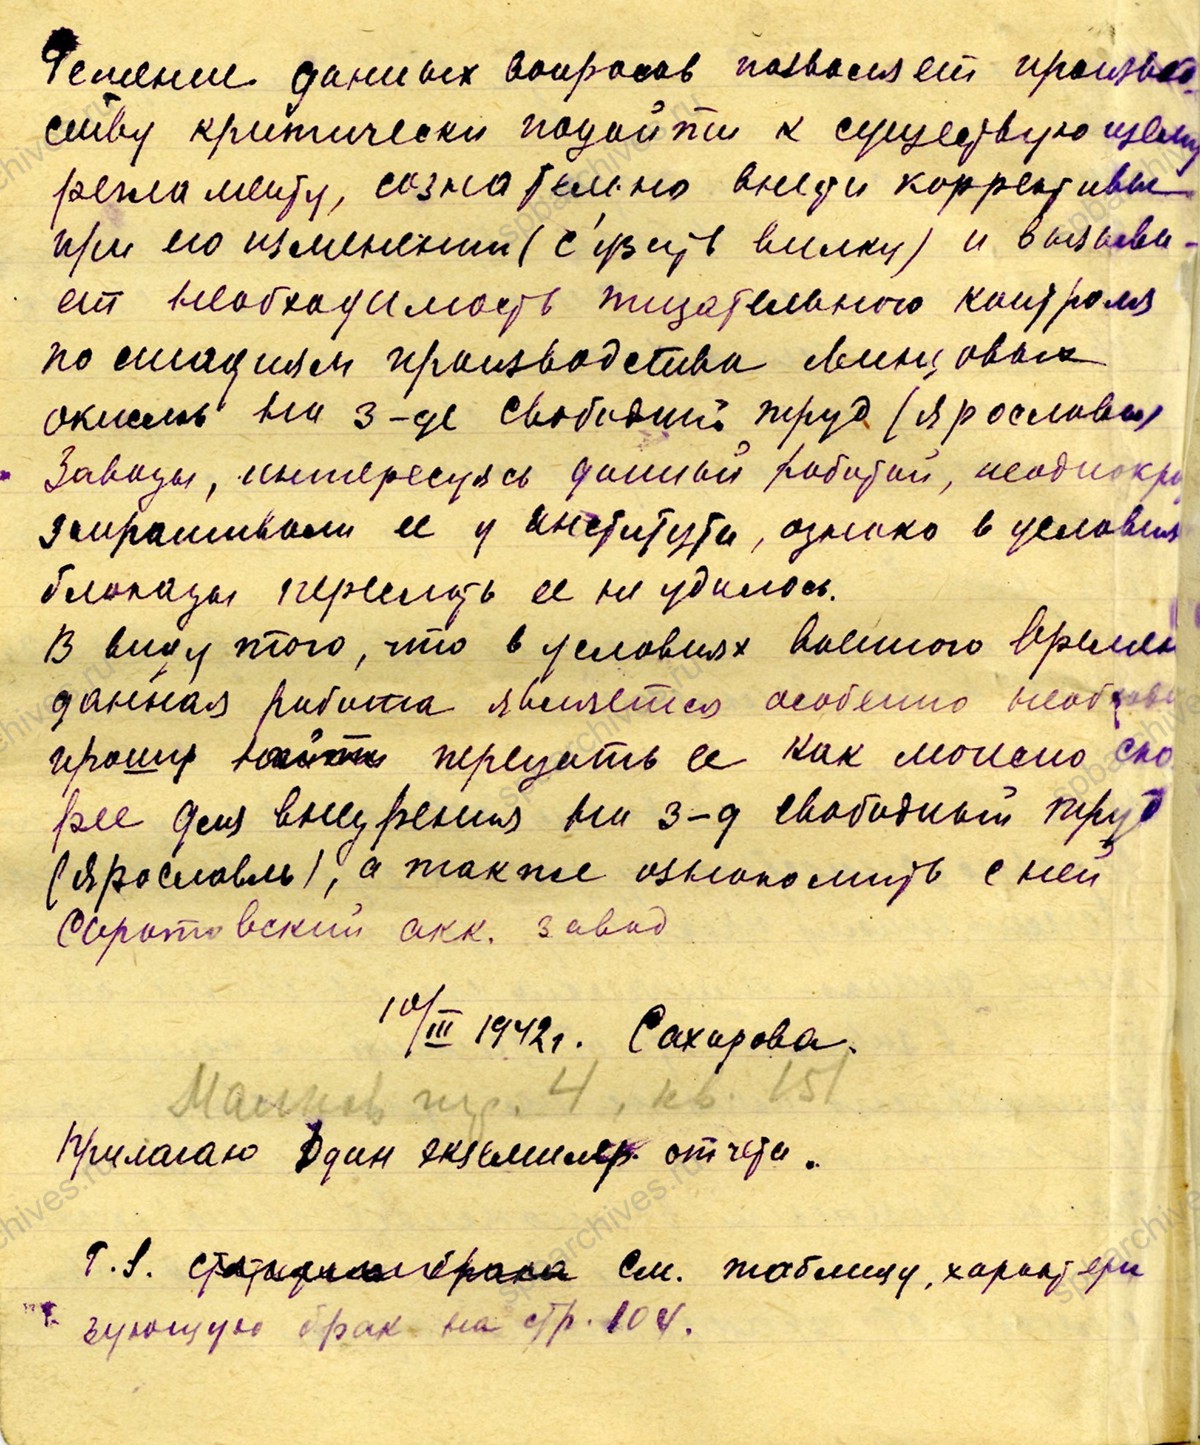 Решение данных вопросов позволяет производ
ству критически подойти к существующему
регламенту, сознательно внеди коррективы
при его изменении (с'узить вилку) и вызыва-
ет необходимость тщательного контроля
по стадиям производства свинцовых
окислов на з-де свободный труд (Ярославль)
Заводы, интересуясь данной работой, неоднокра
запрашивали ее у института, однако в условиях
блокады переслать ее не удалось.
В виду того, что в условиях военного времени
данная работа является особенно необходи
прошу передать ее как можно ско
рее для внедрения на з-д свободный труд
(Ярославль), а также ознакомить с ней
Саратовский акк. завод
10/III 1942г. Сахарова.
Малков пр. 4, кв. 151
Прилагаю один экземпляр отчета.
P.S. см. таблицу, характери
зующую брак на стр. 104.
spbarchives.ru